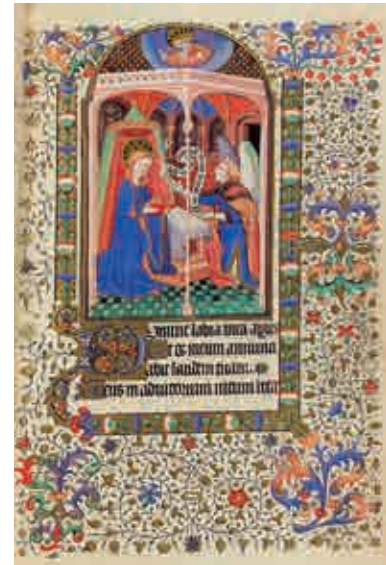 omine labia mea ape
et os meum annunci
abit laudem tuam.
eus in adiutorium meum inte